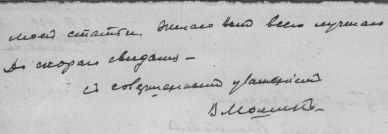 моей статьи. Желаю Вам всего лучшаго
До скораго свидания –
с совершенным уважением